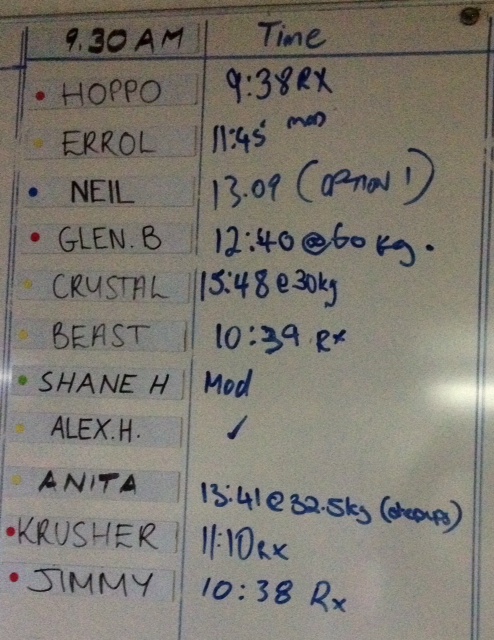 9.30 AM Time
HOPPO 9:38 RX
ERROL 11:45 mod
NEIL 13.09 (OPTION 1)
GLEN.B 12:40 @ 60 kg.
CRYSTAL 15:48 @ 30kg
BEAST 10:39 Rx
SHANE H Mod
ALEX.H. ✓
ANITA 13:41 @ 32.5kg (stepups)
KRUSHER 11:10 RX
JIMMY 10:38 Rx